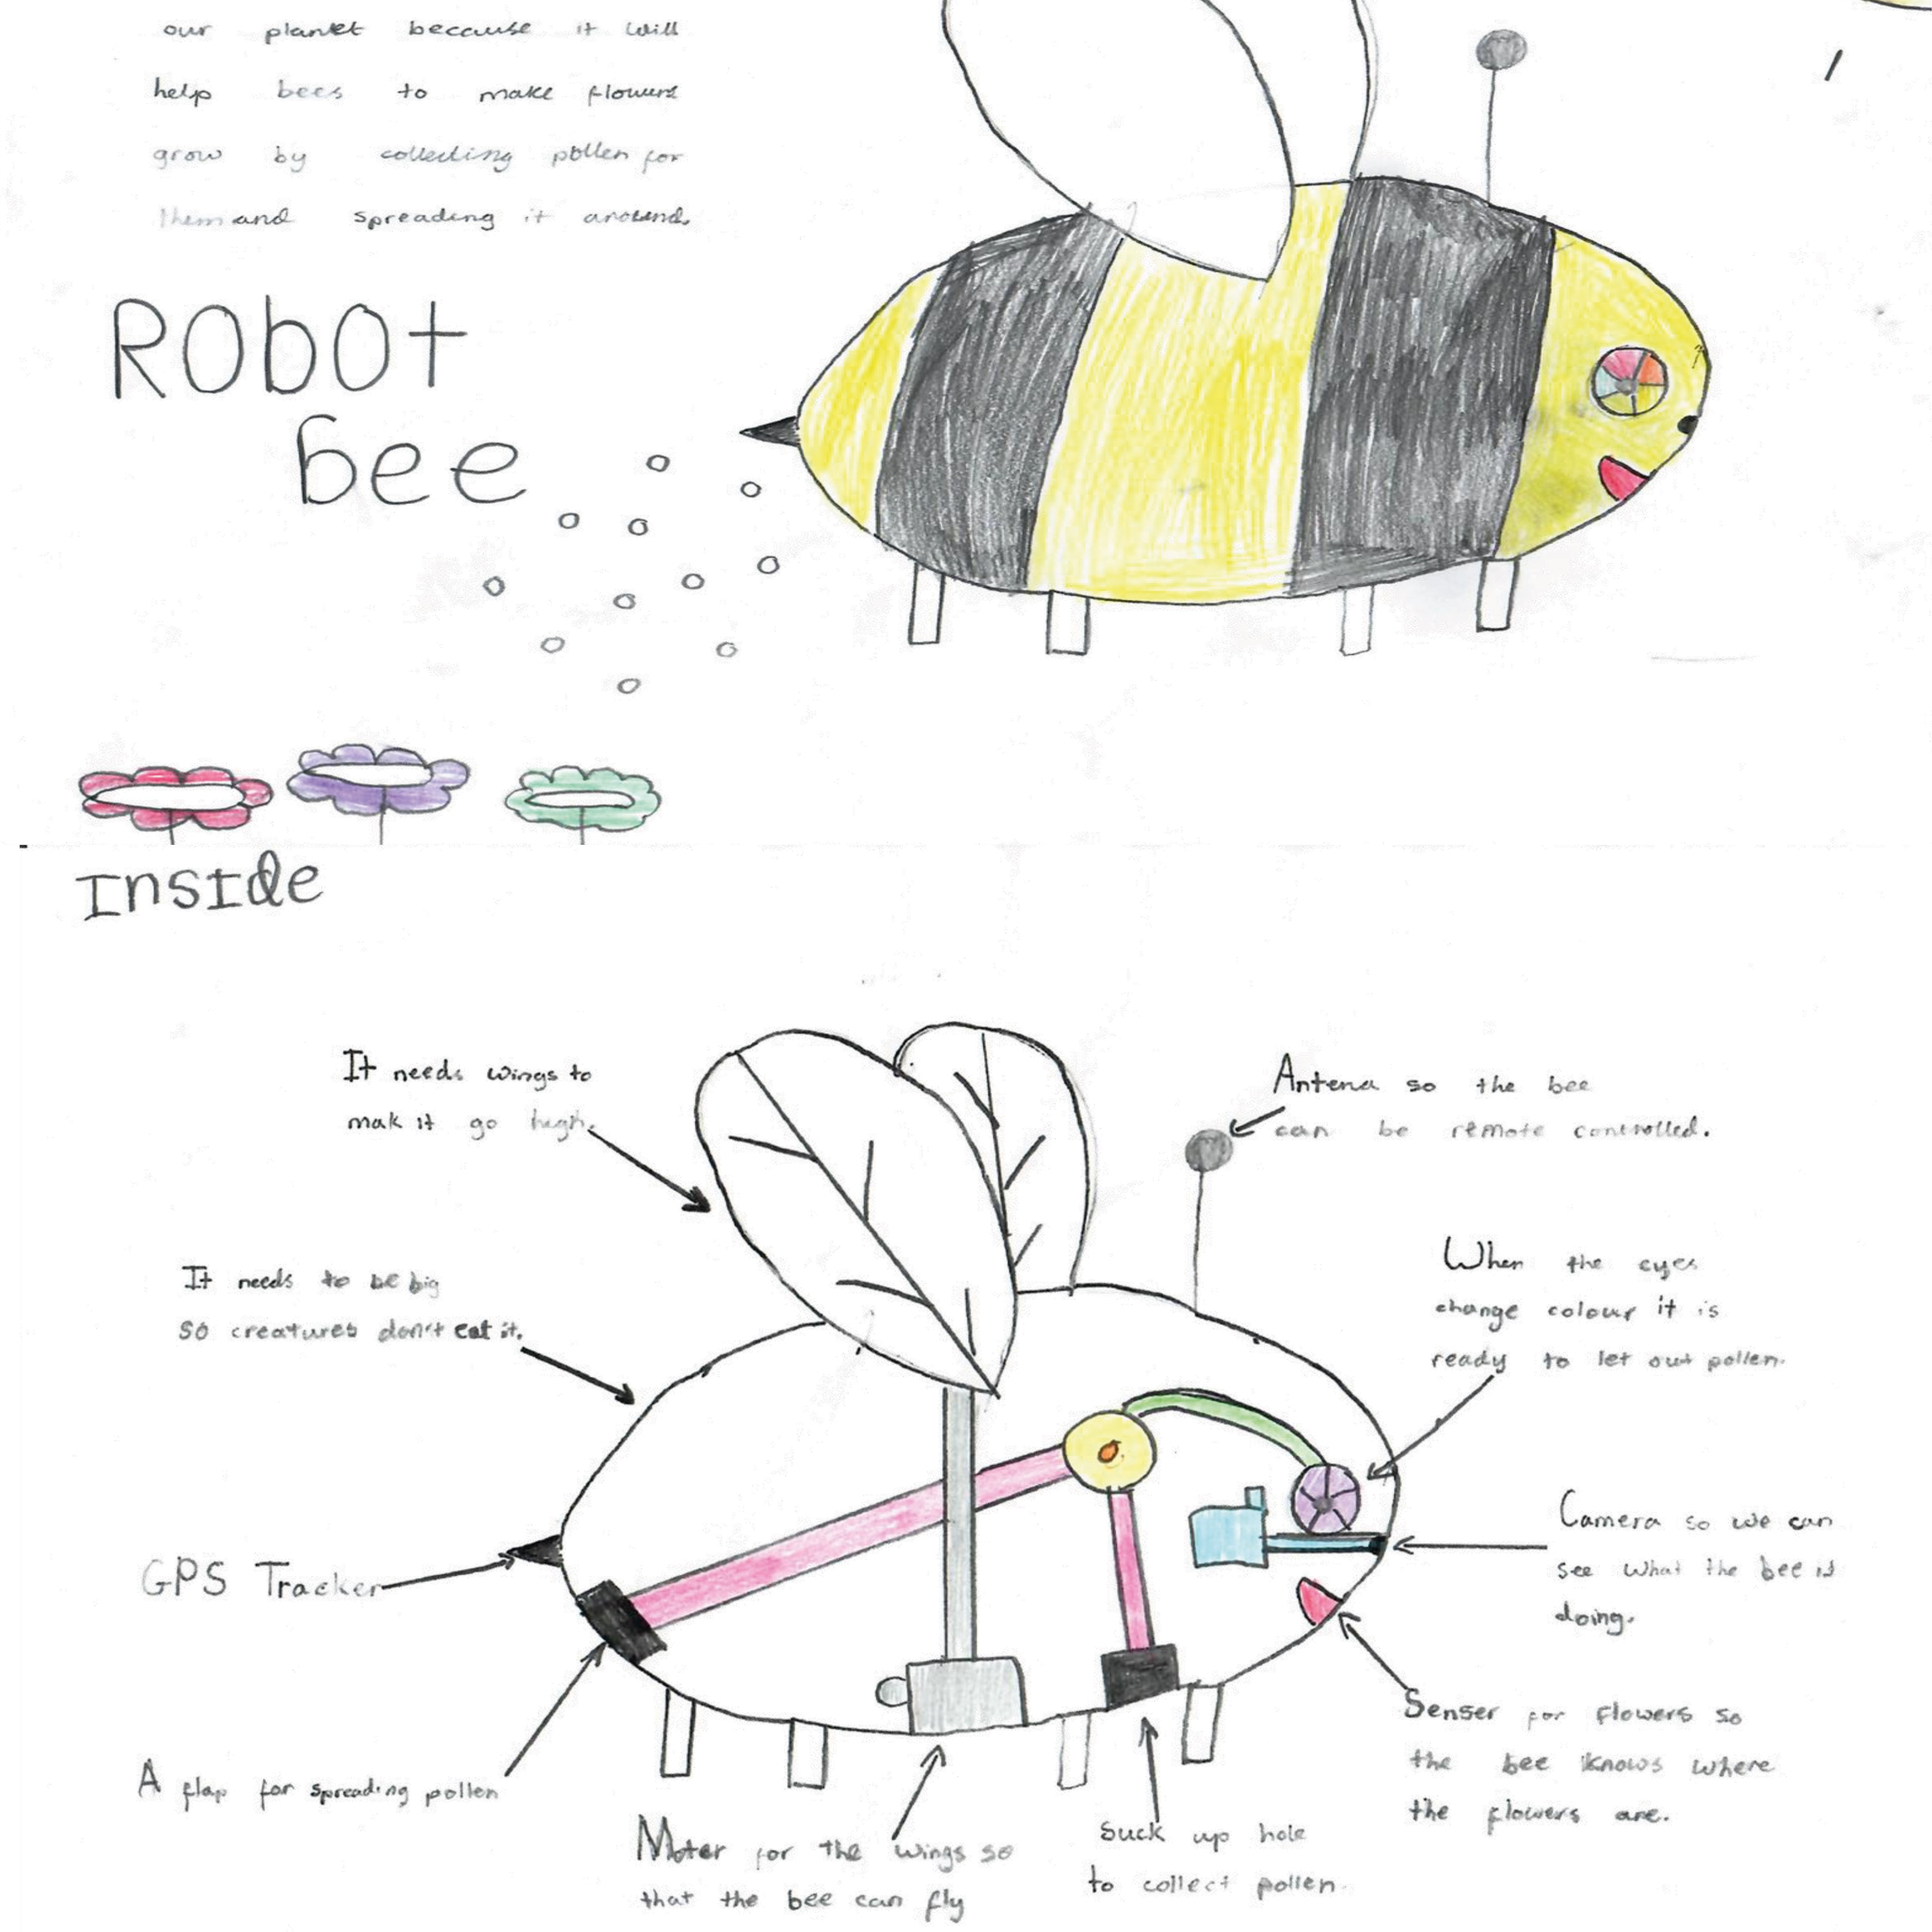 our planet because it will
help bees to make flowers
grow by collecting pollen for
them and spreading it around.
RObOt
bee
InsIde
It needs wings to
mak it go high.
Antena so the bee
can be remote controlled.
It needs to be big
so creatures don't eat it.
When the eyes
change colour it is
ready to let out pollen.
GPS Tracker
Camera so we can
see what the bee is
doing.
A flap for spreading pollen
Senser for flowers so
the bee knows where
the flowers are.
Moter for the wings so
that the bee can fly
Suck up hole
to collect pollen.